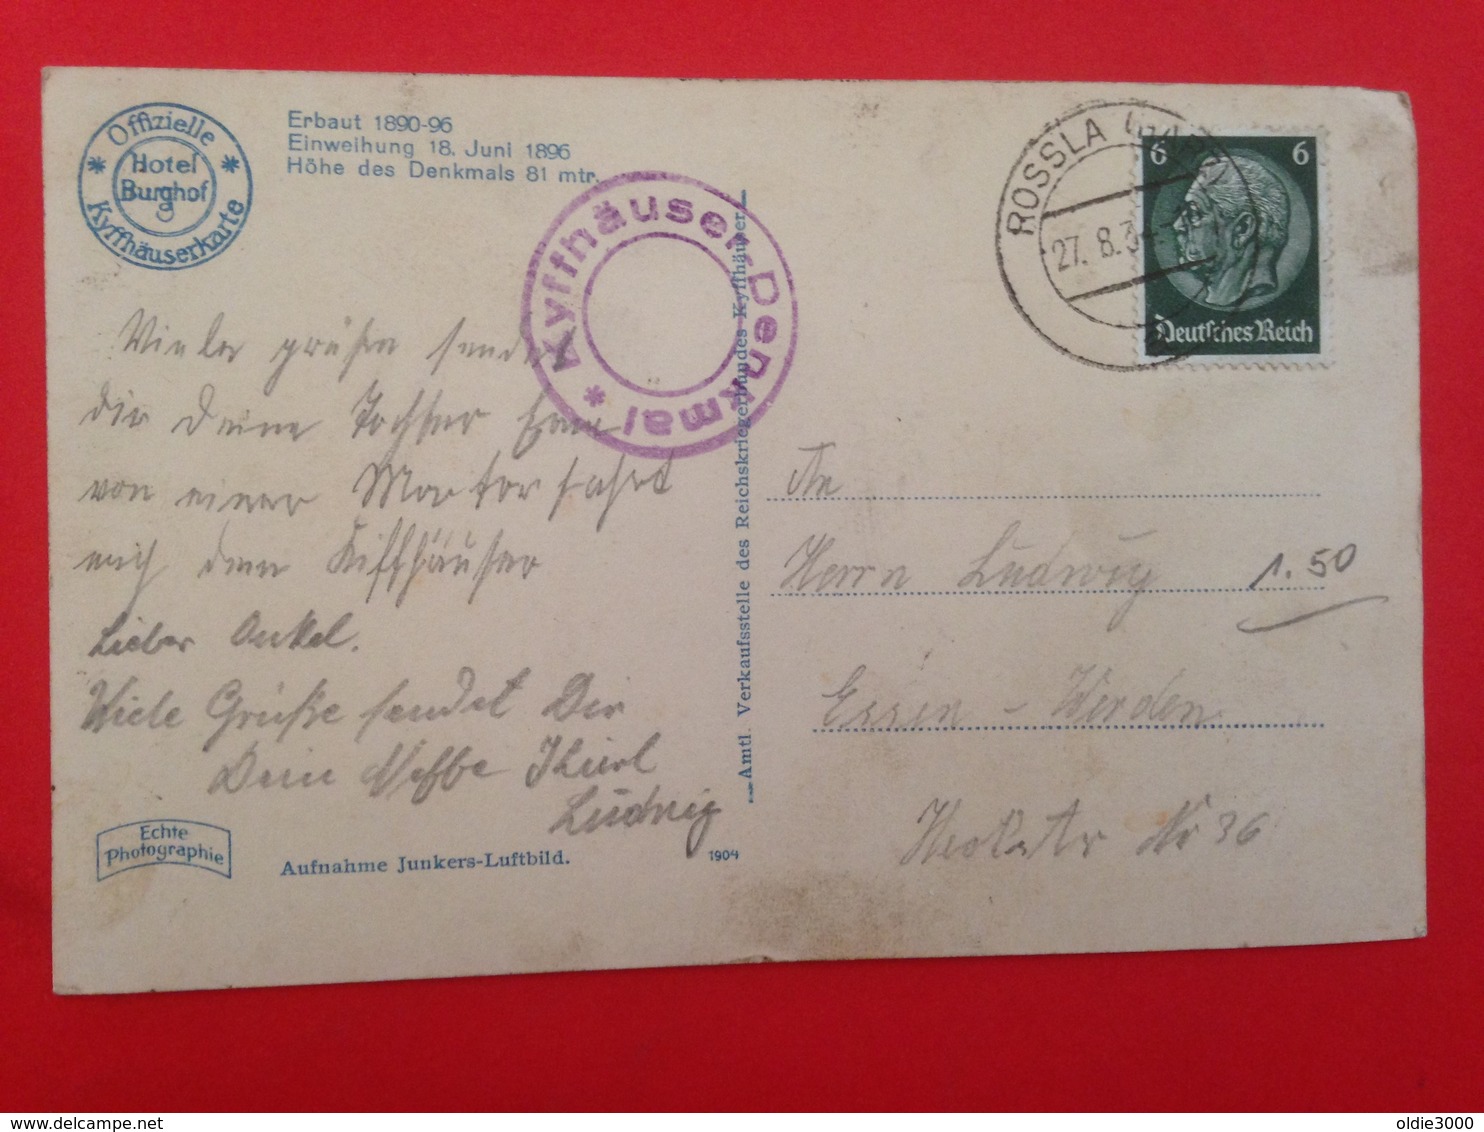 Offizielle
Hotel
Burghof
Kyffhäuserkarte
Erbaut 1890-96
Einweihung 18. Juni 1896
Höhe des Denkmals 81 mtr.
Kyffhäuser-Denkmal
ROSSLA (HARZ)
27. 8. 3
6 6
Deutsches Reich
Viele grüßen sendet
dir deine Tochter
von einer Motorfahrt
nach dem Kiffhäuser
Lieber Onkel.
Viele Grüße sendet Dir
Dein Neffe
Ludwig
Amtl. Verkaufsstelle des Reichskriegerbundes Kyffhäuser
An
Herrn Ludwig
1.50
Essen - Werden
Nr 36
Echte
Photographie
Aufnahme Junkers-Luftbild.
1904
oldie3000